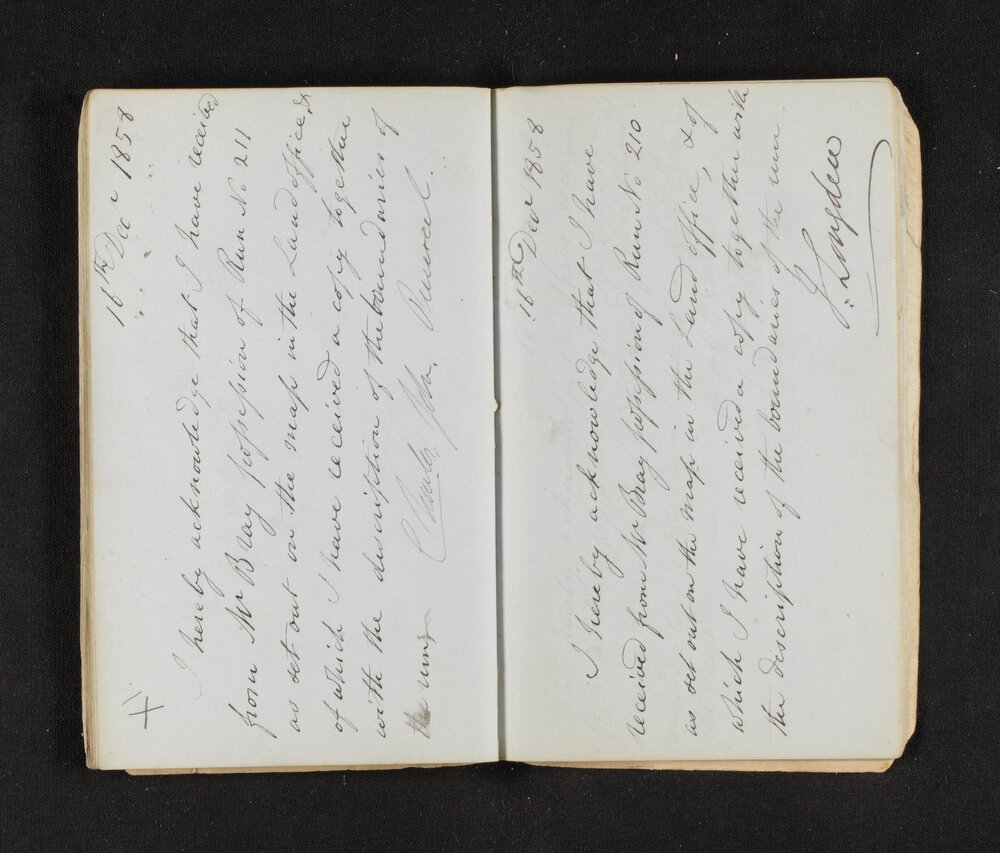 16th Decr 1858
I hereby acknowledge that I have received
from Mr Bray possession of Run No 211
as set out on the map in the Land office, &
of which I have received a copy together
with the description of the boundaries of
the run
16th Decr 1858
I hereby acknowledge that I have
received from Mr Bray possession of Run No 210
as set out on the map in the Land office, & of
which I have received a copy together with
the description of the boundaries of the run
J. Longden